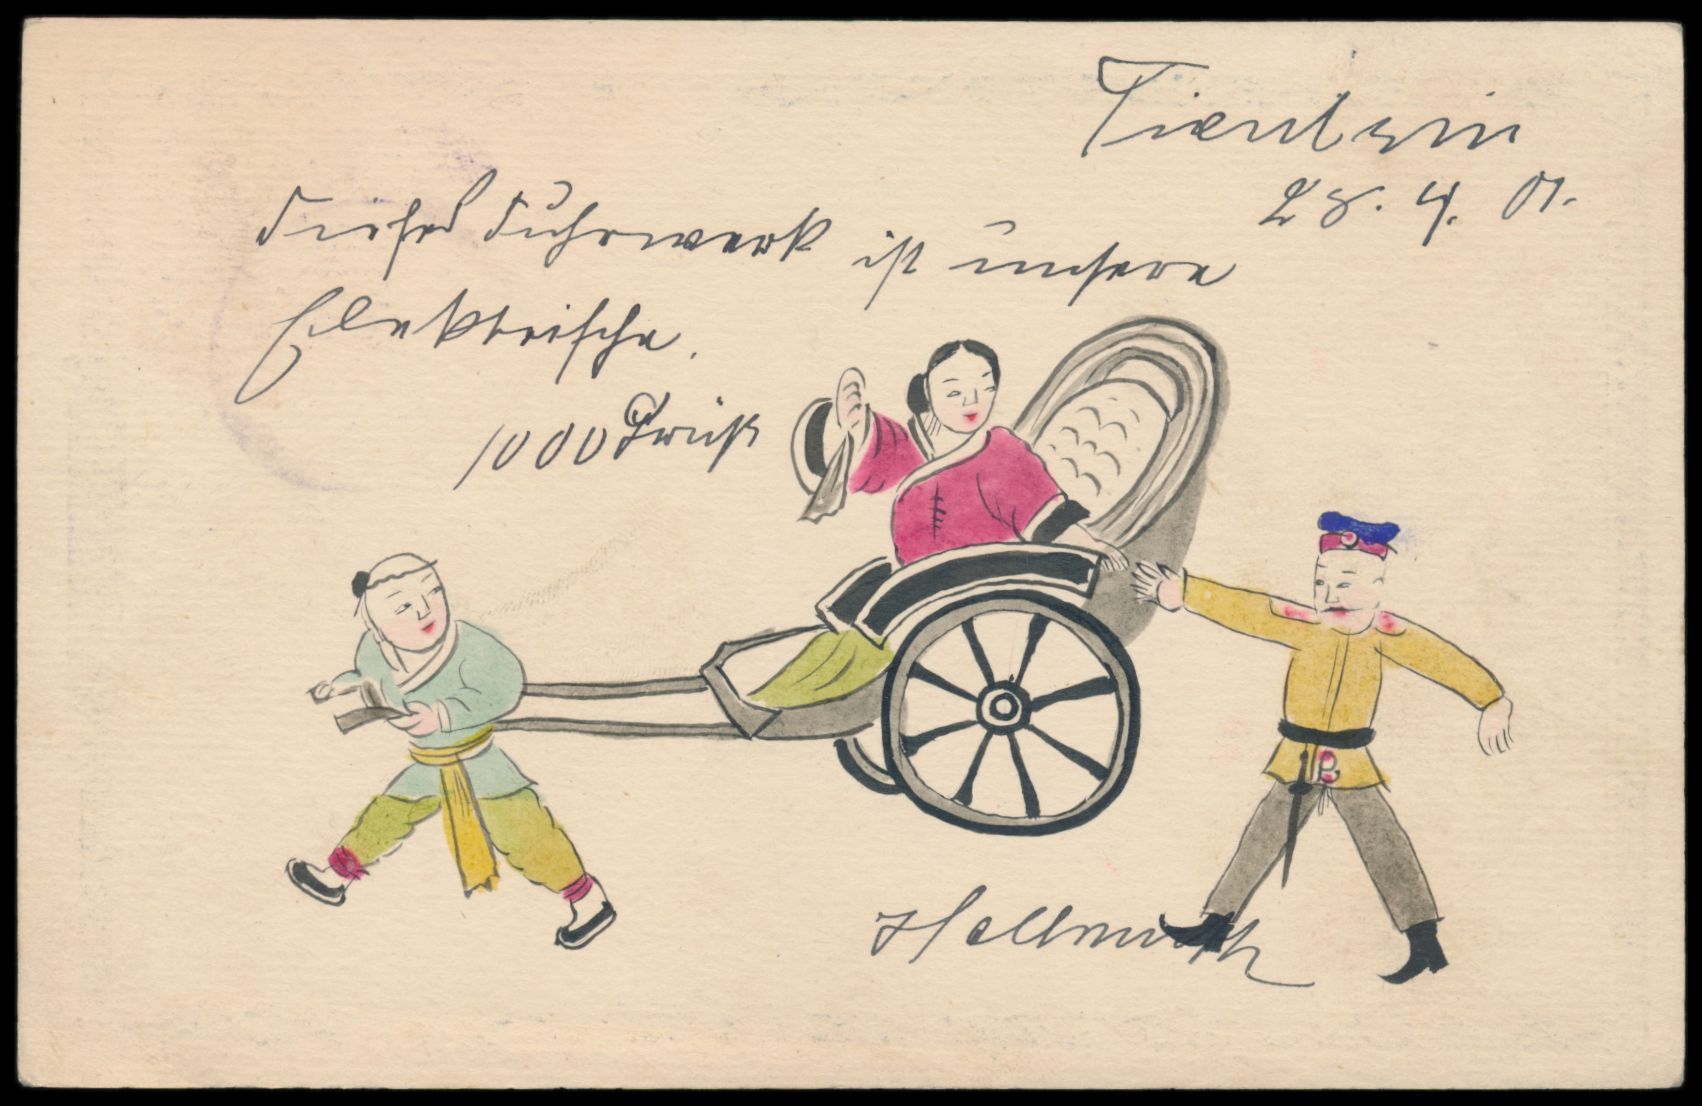 Tientsin
28. 4. 01.
Dieses Fuhrwerk ist unsere
Elektrische.
1000 Grüße
Hellmuth